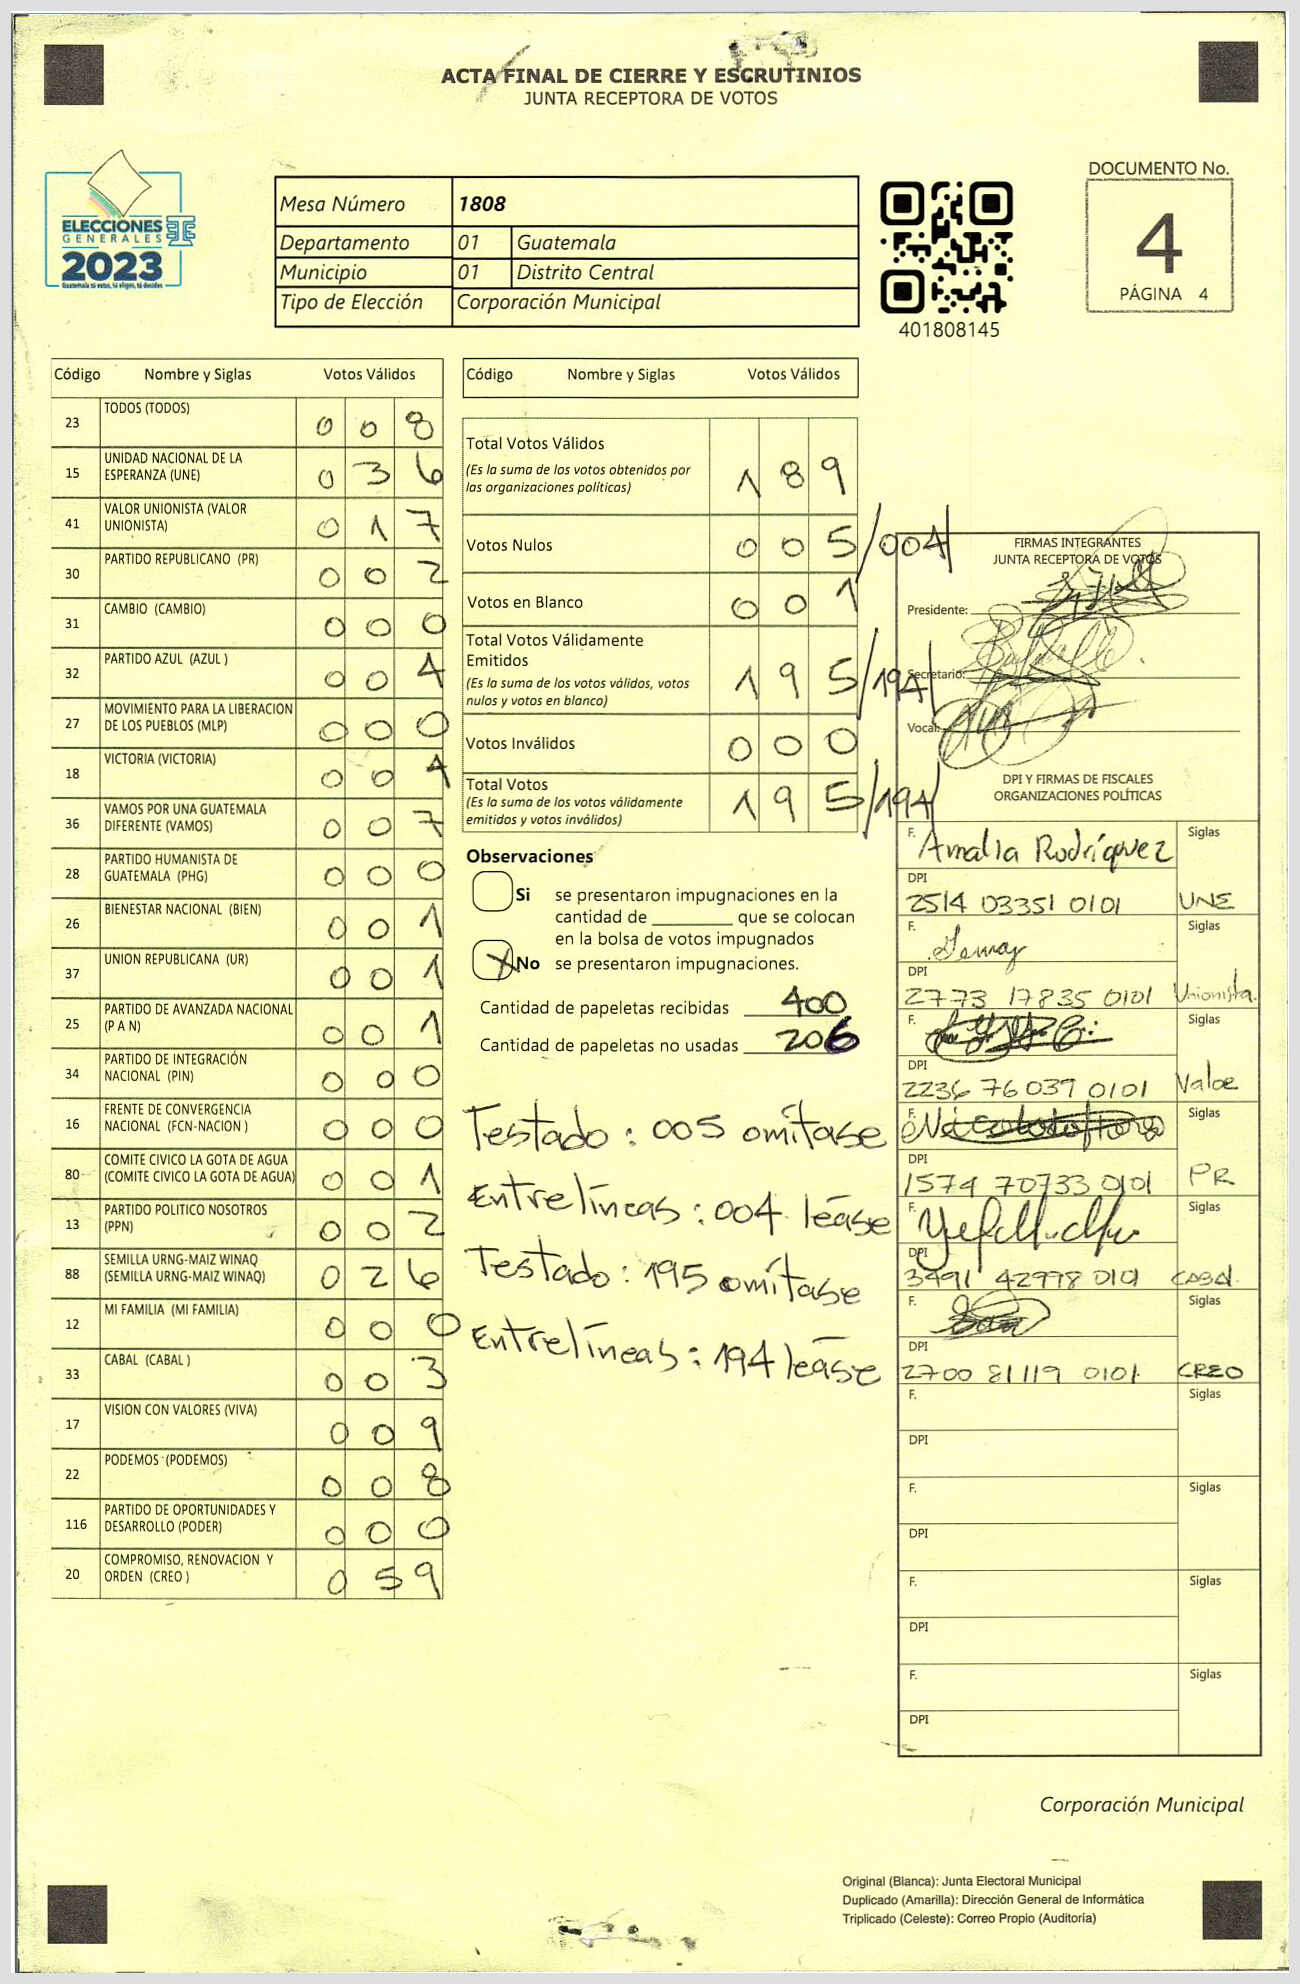 ACTA FINAL DE CIERRE Y ESCRUTINIOS
JUNTA RECEPTORA DE VOTOS
DOCUMENTO No.
4
PÁGINA 4
ELECCIONES
GENERALES
2023
Guatemala tú votas, tú eliges, tú decides
Mesa Número 1808
Departamento 01 Guatemala
Municipio 01 Distrito Central
Tipo de Elección Corporación Municipal
401808145
Código Nombre y Siglas Votos Válidos
23 TODOS (TODOS) 0 0 8
15 UNIDAD NACIONAL DE LA
ESPERANZA (UNE) 0 3 6
41 VALOR UNIONISTA (VALOR
UNIONISTA) 0 1 7
30 PARTIDO REPUBLICANO (PR) 0 0 2
31 CAMBIO (CAMBIO) 0 0 0
32 PARTIDO AZUL (AZUL ) 0 0 4
27 MOVIMIENTO PARA LA LIBERACION
DE LOS PUEBLOS (MLP) 0 0 0
18 VICTORIA (VICTORIA) 0 0 4
36 VAMOS POR UNA GUATEMALA
DIFERENTE (VAMOS) 0 0 7
28 PARTIDO HUMANISTA DE
GUATEMALA (PHG) 0 0 0
26 BIENESTAR NACIONAL (BIEN) 0 0 1
37 UNION REPUBLICANA (UR) 0 0 1
25 PARTIDO DE AVANZADA NACIONAL
(P A N) 0 0 1
34 PARTIDO DE INTEGRACIÓN
NACIONAL (PIN) 0 0 0
16 FRENTE DE CONVERGENCIA
NACIONAL (FCN-NACION ) 0 0 0
80 COMITE CIVICO LA GOTA DE AGUA
(COMITE CIVICO LA GOTA DE AGUA) 0 0 1
13 PARTIDO POLITICO NOSOTROS
(PPN) 0 0 2
88 SEMILLA URNG-MAIZ WINAQ
(SEMILLA URNG-MAIZ WINAQ) 0 2 6
12 MI FAMILIA (MI FAMILIA) 0 0 0
33 CABAL (CABAL ) 0 0 3
17 VISION CON VALORES (VIVA) 0 0 9
22 PODEMOS (PODEMOS) 0 0 8
116 PARTIDO DE OPORTUNIDADES Y
DESARROLLO (PODER) 0 0 0
20 COMPROMISO, RENOVACION Y
ORDEN (CREO ) 0 5 9
Código Nombre y Siglas Votos Válidos
Total Votos Válidos 1 8 9
(Es la suma de los votos obtenidos por
las organizaciones políticas)
Votos Nulos 0 0 5/004/
Votos en Blanco 0 0 1
Total Votos Válidamente
Emitidos 1 9 5/194/
(Es la suma de los votos válidos, votos
nulos y votos en blanco)
Votos Inválidos 0 0 0
Total Votos 1 9 5/194/
(Es la suma de los votos válidamente
emitidos y votos inválidos)
Observaciones
Si se presentaron impugnaciones en la
cantidad de ________ que se colocan
en la bolsa de votos impugnados
X No se presentaron impugnaciones.
Cantidad de papeletas recibidas 400
Cantidad de papeletas no usadas 206
Testado : 005 omítase
Entrelíneas : 004 léase
Testado : 195 omítase
Entrelíneas : 194 léase
FIRMAS INTEGRANTES
JUNTA RECEPTORA DE VOTOS
Presidente:
Secretario:
Vocal:
DPI Y FIRMAS DE FISCALES
ORGANIZACIONES POLÍTICAS
F. Amalia Rodríguez Siglas
DPI
2514 03351 0101 UNE
F. Siglas
DPI
2773 17835 0101 Unionista
F. Siglas
DPI
2236 76039 0101 Valor
F. Siglas
DPI
1574 70733 0101 PR
F. Siglas
DPI
3491 42998 0101 CABAL
F. Siglas
DPI
2700 81119 0101 CREO
F. Siglas
DPI
F. Siglas
DPI
F. Siglas
DPI
F. Siglas
DPI
Corporación Municipal
Original (Blanca): Junta Electoral Municipal
Duplicado (Amarilla): Dirección General de Informática
Triplicado (Celeste): Correo Propio (Auditoría)